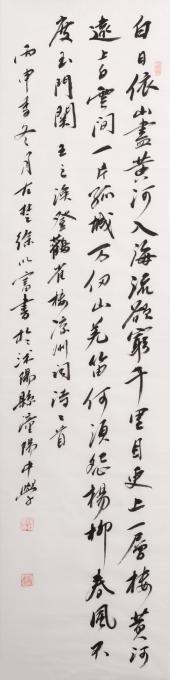 白日依山盡黃河入海流欲窮千里目更上一層樓黃河
遠上白雲間一片孤城万仞山羌笛何須怨楊柳春風不
度玉門關 王之渙登鸛雀樓涼州詞詩二首
丙申秊冬月古楚徐以富書於沭陽縣潼陽中學